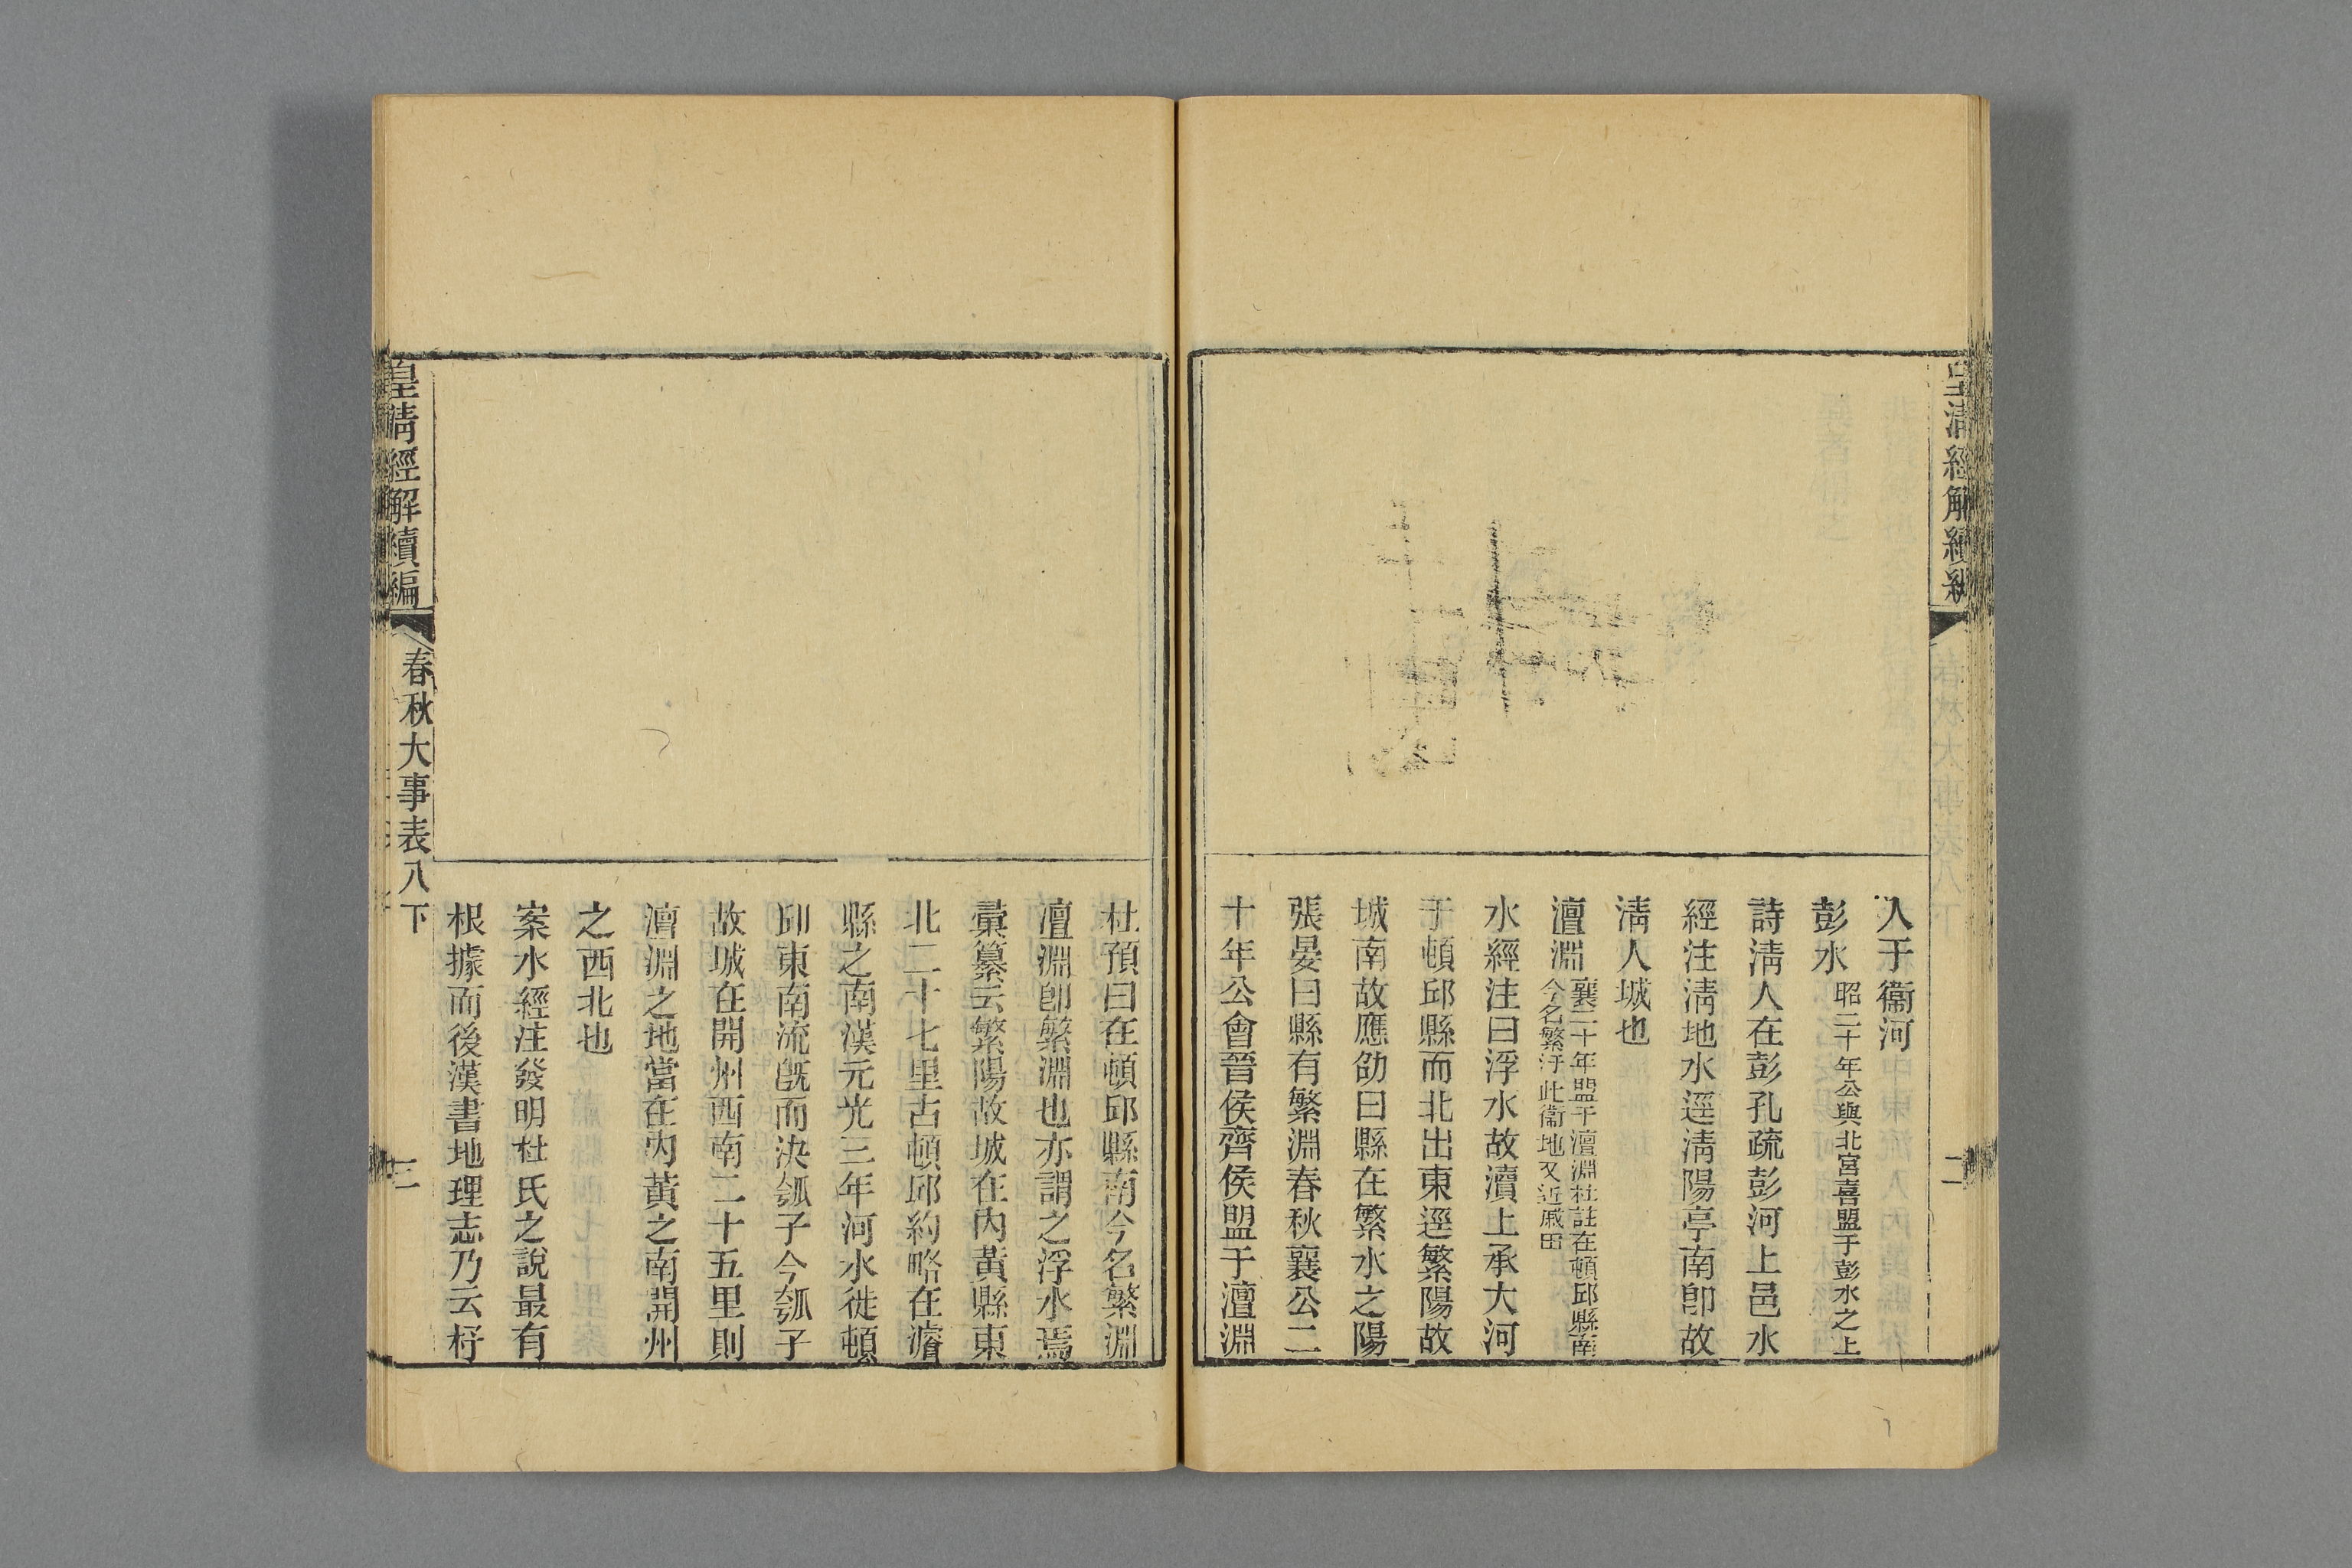 皇清經解續編
二
入于衞河
彭水 昭二十年公與北宮喜盟于彭水之上
詩淸人在彭孔疏彭河上邑水
經注淸地水逕淸陽亭南卽故
淸人城也
澶淵 襄二十年盟于澶淵杜註在頓邱縣南
今名繁汙此衞地又近戚田
水經注曰浮水故瀆上承大河
于頓邱縣而北出東逕繁陽故
城南故應劭曰縣在繁水之陽
張晏曰縣有繁淵春秋襄公二
十年公會晉侯齊侯盟于澶淵
杜預曰在頓邱縣南今名繁淵
澶淵卽繁淵也亦謂之浮水焉
彙纂云繁陽故城在內黃縣東
北二十七里古頓邱約略在濬
縣之南漢元光三年河水徙頓
邱東南流旣而決瓠子今瓠子
故城在開州西南二十五里則
澶淵之地當在內黃之南開州
之西北也
案水經注發明杜氏之說最有
根據而後漢書地理志乃云杼
皇清經解續編
春秋大事表八下
三